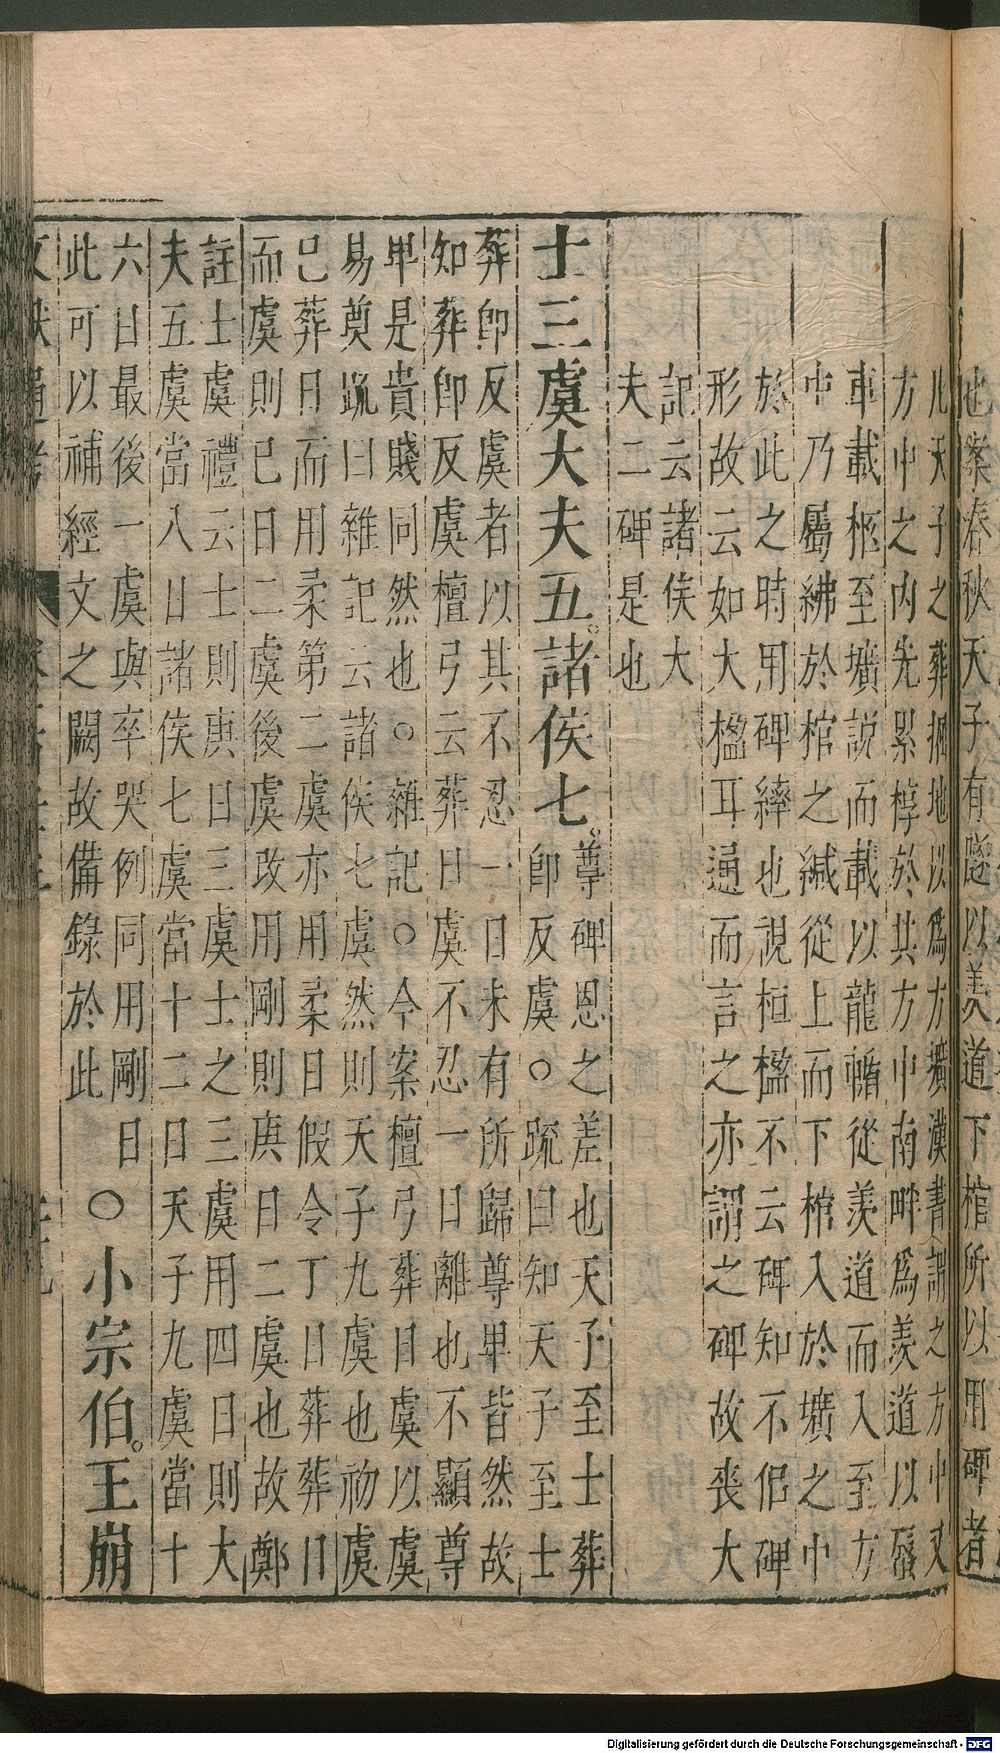 也案春秋天子有隧以羨道下棺所以用碑者
凡天子之葬掘地以爲方壙漢書謂之方中又
方中之内先累椁於其方中南畔爲羨道以蜃
車載柩至壙說而載以龍輴從羨道而入至方
中乃屬紼於棺之緘從上而下棺入於壙之中
於此之時用碑繂也說桓楹不云碑知不侣碑
形故云如大楹耳通而言之亦謂之碑故喪大
記云諸侯大
夫二碑是也
士三虞大夫五諸侯七
尊碑恩之差也天子至士葬
即反虞○疏曰知天子至士
葬即反虞者以其不忍一日未有所歸尊卑皆然故
知葬即反虞檀弓云葬日虞不忍一日離也不顯尊
卑是貴賤同然也○雜記○今案檀弓葬日虞以虞
易奠疏曰雜記云諸侯七虞然則天子九虞也初虞
已葬日而用柔第二虞亦用柔日假令丁日葬葬日
而虞則巳日二虞後虞改用剛則庚日二虞也故鄭
註士虞禮云士則庚日三虞士之三虞用四日則大
夫五虞當八日諸侯七虞當十二日天子九虞當十
六日最後一虞與卒哭例同用剛日
此可以補經文之闕故備錄於此
○小宗伯王崩
Digitalisierung gefördert durch die Deutsche Forschungsgemeinschaft - DFG